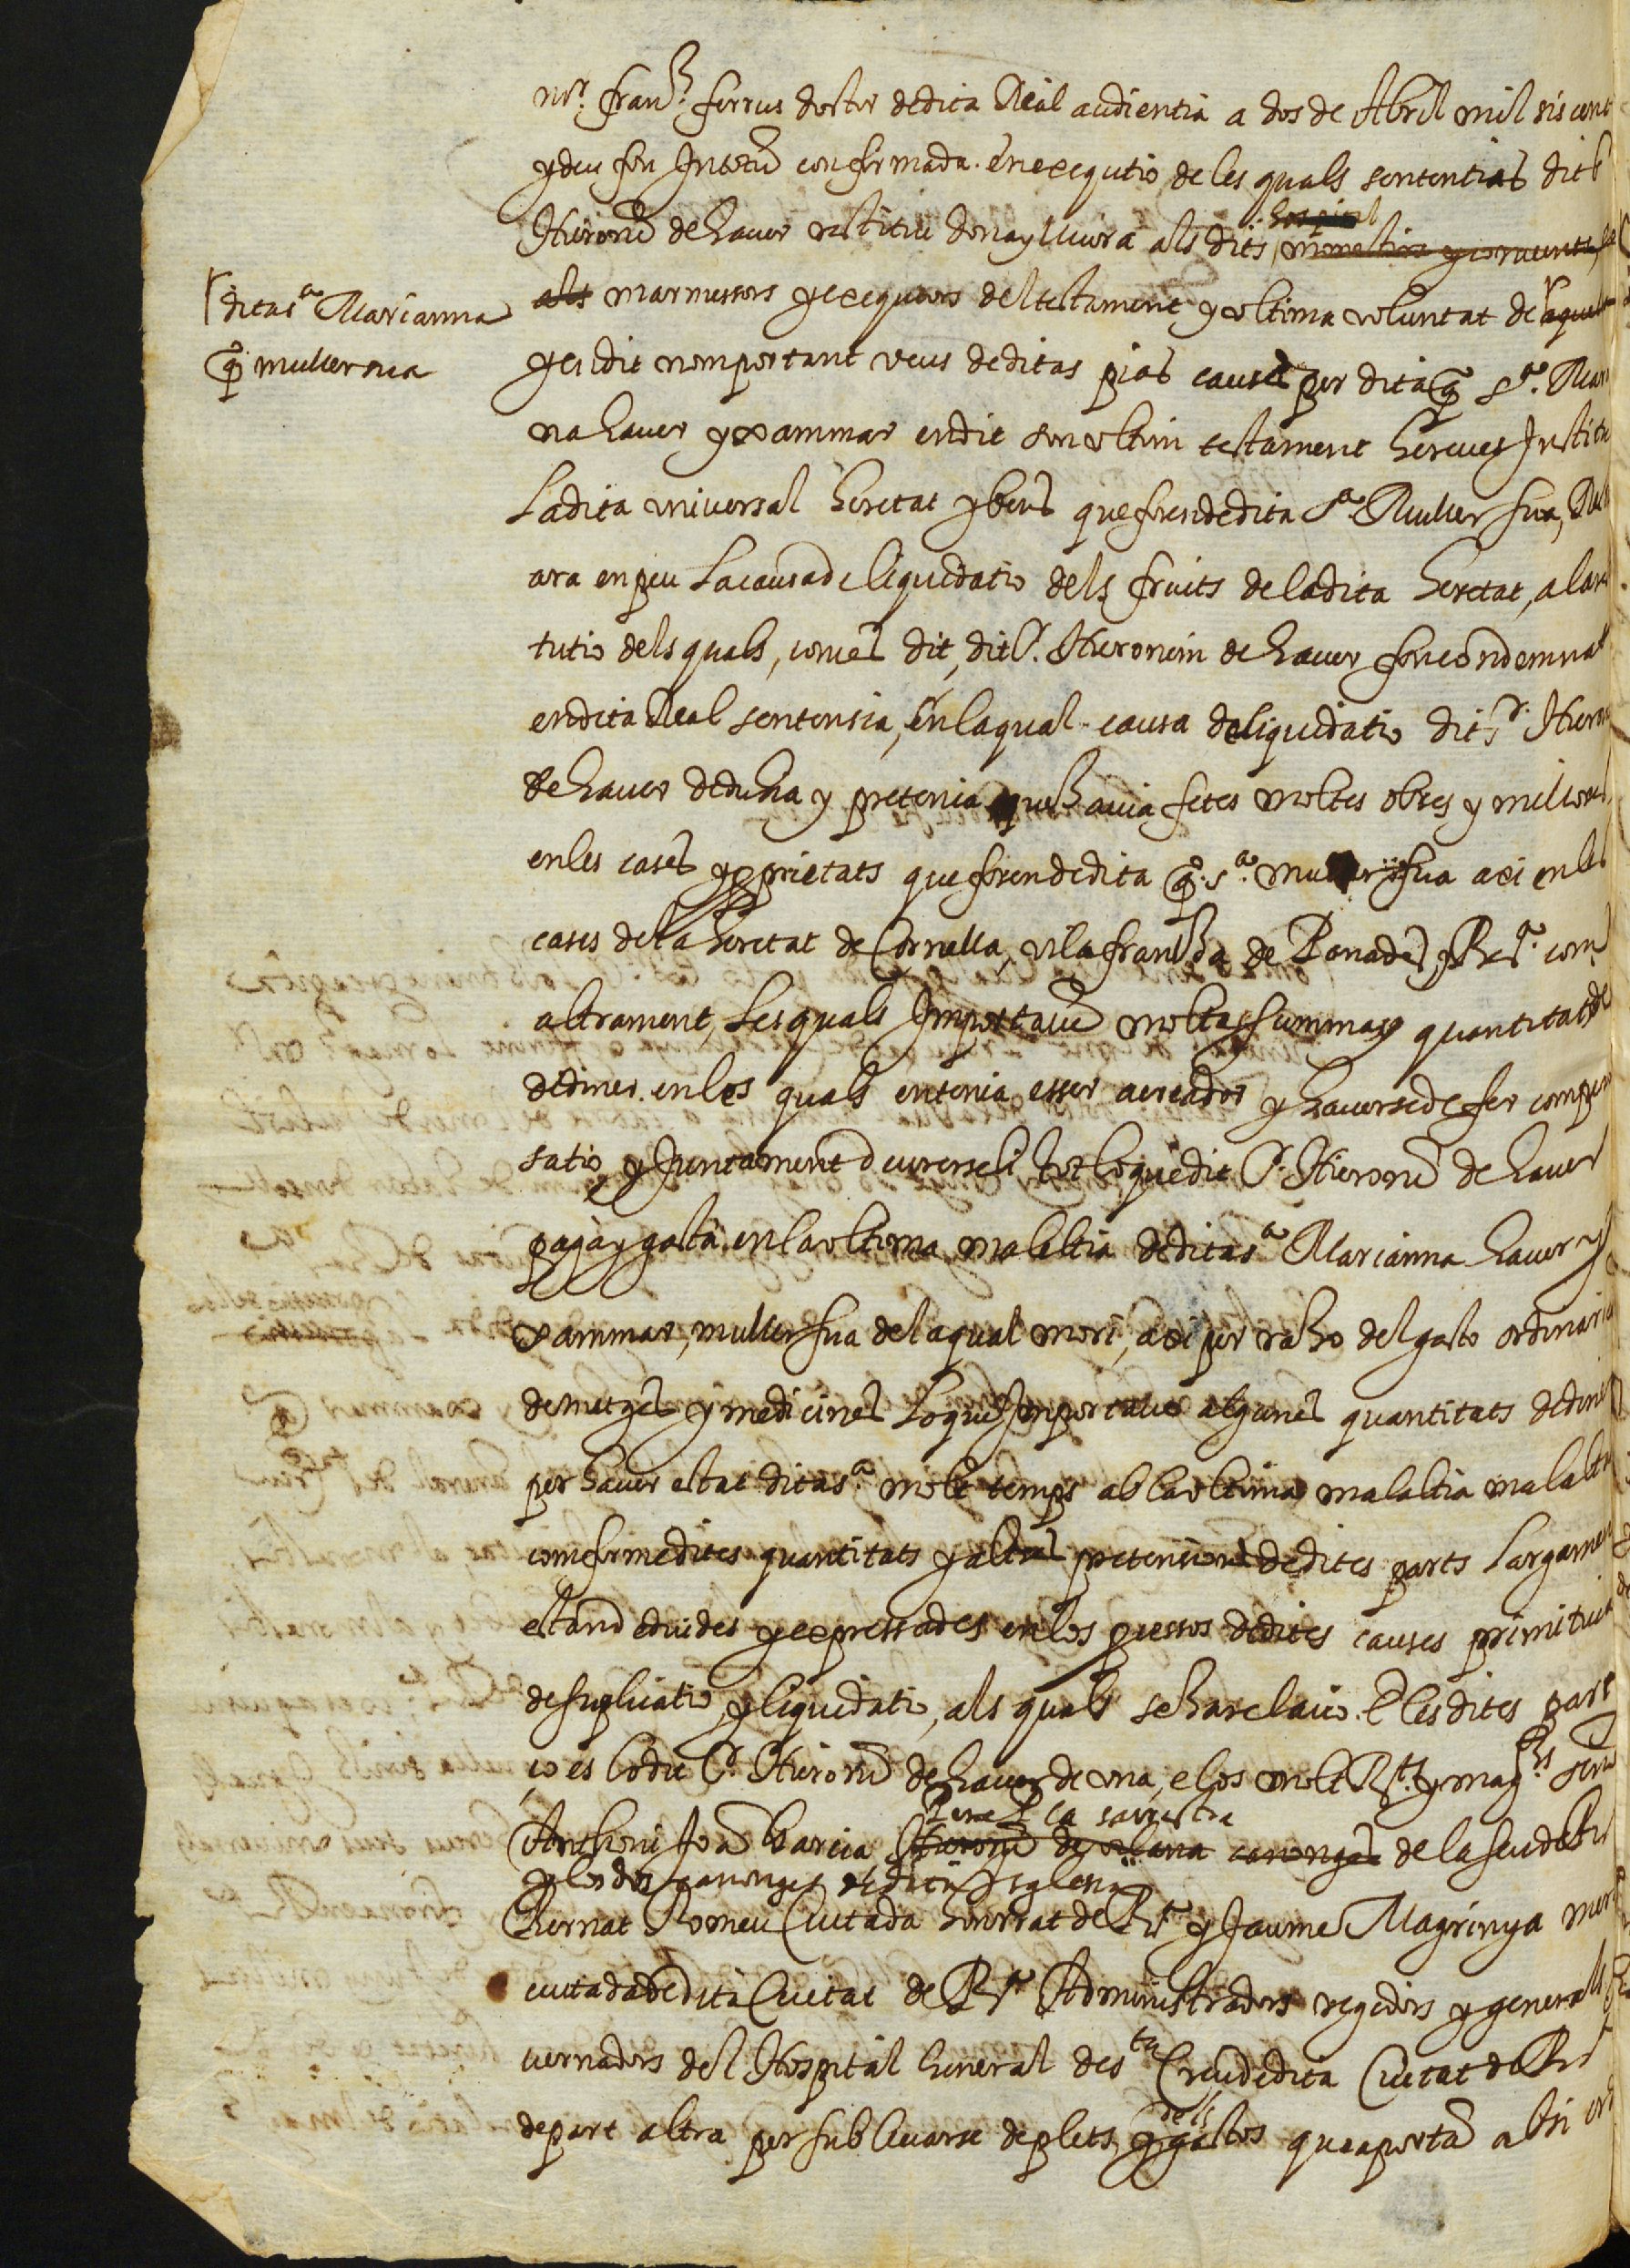 mr. franch. ferrus doctor de dita Real audientia a dos de Abril mil sis cent
y deu fou In totum confirmada. en exequtio de les quals sententias dit Sr
Hieronim de hauer restitui dona y lliura als dits hospital monestirs y conuents
als marmessors y exequtors del testament y vltima voluntat de aquella
dita sa. Marianna
qo. muller sua
y en dit nom portant veus de ditas pias causas per dita qo. sa. Marian
na hauer y xammar en dit son vltim testament hereues Instituides
La dita vniuersal heretat y bens que foren de dita sa. Muller sua,
ara en peu La causa de liquidatio dels fruits de la dita heretat, a la resti
tutio dels quals, com es dit, dit Sr. Hieronim de hauer fou condemnat
en dita Real sentensia, En la qual causa de liquidatio dit Sr. Hieronim
de hauer deduhia y pretenia que hauia fetes moltes obres y millores
en les cases y proprietats que foren de dita qo. sa. muller sua axi en les
cases de la heretat de Cornella, vilafrancha de Panades, y Bara. com
altrament, Les quals Importauen moltas summas y quantitats de
de diner. en les quals entenia esser acreador y hauerse de fer compen
satio, y Juntament deurerseli tot lo que dit Sr. Hieronim de hauer
paga y gasta en la vltima malaltia de dita sa. Marianna hauer y
xammar, muller sua de la qual mori, axi per raho del gasto ordinari
de metges y medicines Lo que Importaue algunes quantitats de diner
per hauer estat dita sa. molt temps ab la vltima malaltia malalta
com conforme dites quantitats y altres pretensions de dites parts Largament
estan deduides y expressades en los processos de dites causes primitiua
de suplicatio, y liquidatio, als quals se ha relatio. E les dites parts
ço es lo dit Sr. Hieronim de hauer de vna, e los molt Rts. y magchs senyors
Anthoni Joan Garcia Hieronim de vilana canonges de la seu de Bara
Pere Pla sacrista
y los dos canonges de dita Iglesia
Bernat Romeu Ciutada honrrat de Bara y Jaume Magrinya mer
ciutada de dita Ciutat de Bara Administradors regidors y generals
uernadors del Hospital General de sta Creu de dita Ciutat de Bara
de part altra per subleuarse de plets, y gastos que aportan a bsi
dels